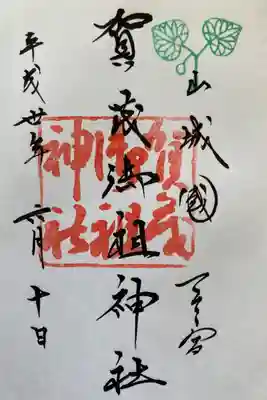 山城國一之宮
賀茂御祖神社
平成卅年六月十日
賀茂
御祖
神社